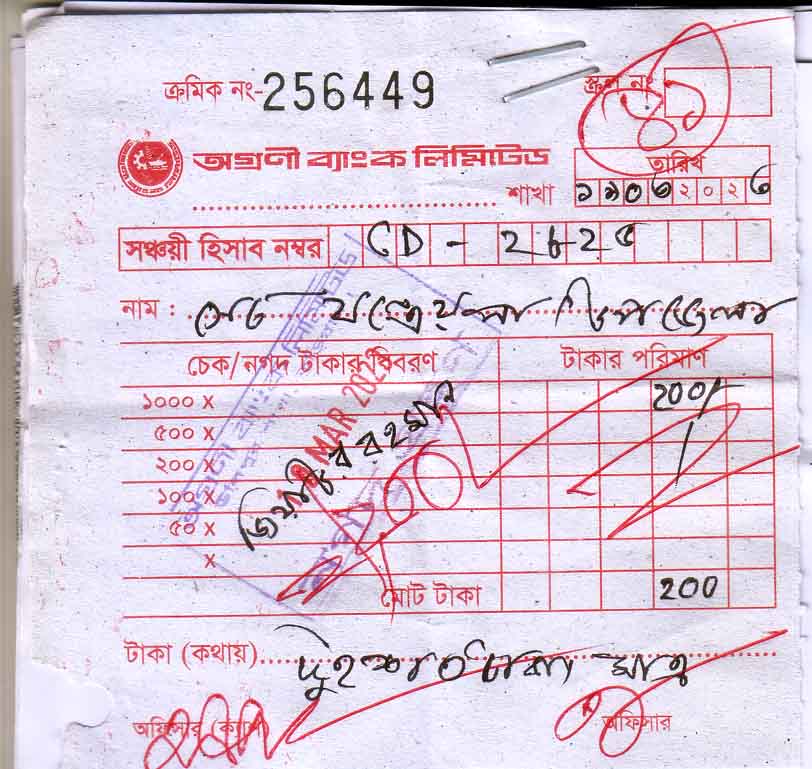 ক্রমিক নং-256449
স্ক্রল নং
অগ্রণী ব্যাংক লিমিটেড
তারিখ
শাখা
১৯০৩২০২৬
সঞ্চয়ী হিসাব নম্বর CD - ২৮২৫
নাম :
চেক/নগদ টাকার বিবরণ টাকার পরিমাণ
১০০০ X 200/-
৫০০ X
২০০ X
১০০ X
৫০ X
X
জিয়াউর রহমান
MAR
মোট টাকা 200
টাকা (কথায়) দুইশত টাকা মাত্র
অফিসার (ক্যাশ) অফিসার